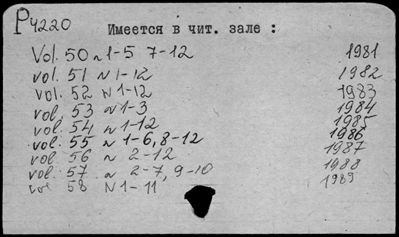 P4220
Имеется в чит. зале :
Vol. 50 N 1-5 7-12 1981
vol. 51 N 1-12 1982
vol. 52 N 1-12 1983
vol. 53 N 1-3 1984
vol. 54 N 1-12 1985
vol. 55 N 1-6, 8-12 1986
vol. 56 N 2-12 1987
vol. 57 N 2-7, 9-10 1988
vol 58 N 1-11 1989